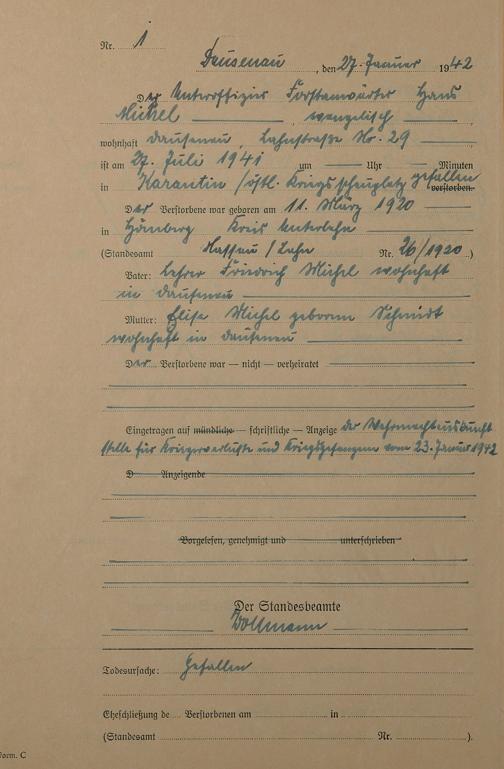 Nr. 1
Dausenau, den 27. Januar 1942
Der Unteroffizier Forstanwärter Hans
Michel, evangelisch,
wohnhaft Dausenau, Lahnstraße Nr. 29
ist am 27. Juli 1941 um Uhr Minuten
in Karantin / östl. Kriegsschauplatz gefallen verstorben.
Der Verstorbene war geboren am 11. März 1920
in Hömberg Kreis Unterlahn
(Standesamt Nassau / Lahn Nr. 26/1920)
Vater: Lehrer Friedrich Michel wohnhaft
in Dausenau
Mutter: Elise Michel geborene Schmidt
wohnhaft in Dausenau
Der Verstorbene war — nicht — verheiratet
Eingetragen auf mündliche — schriftliche — Anzeige der Wehrmachtauskunft
stelle für Kriegerverluste und Kriegsgefangene vom 23. Januar 1942
D Anzeigende
Vorgelesen, genehmigt und unterschrieben
Der Standesbeamte
Todesursache: Gefallen
Eheschließung de Verstorbenen am in
(Standesamt Nr. ).
Form. C